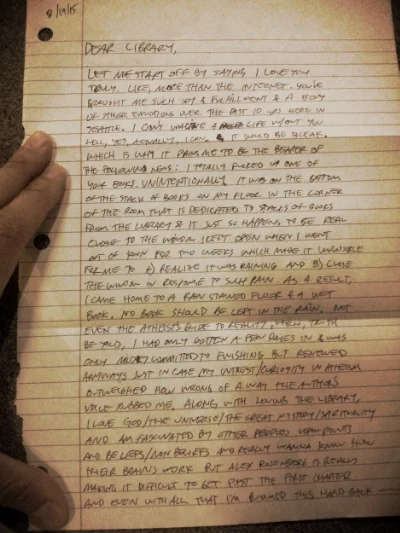 8/19/15
DEAR LIBRARY,
LET ME START OFF BY SAYING I LOVE YOU
TRULY. LIKE, MORE THAN THE INTERNET. YOU'VE
BROUGHT ME SUCH JOY & FULFILLMENT & A BEVY
OF OTHER EMOTIONS OVER THE PAST 10 YRS HERE IN
SEATTLE. I CAN'T IMAGINE A LIFE W/OUT YOU
WELL, YES, ACTUALLY, I CAN. & IT WOULD BE BLEAK.
WHICH IS WHY IT PAINS ME TO BE THE BEARER OF
THE FOLLOWING NEWS: I TOTALLY FUCKED UP ONE OF
YOUR BOOKS. UNINTENTIONALLY. IT WAS ON THE BOTTOM
OF THE STACK OF BOOKS ON MY FLOOR IN THE CORNER
OF THE ROOM THAT IS DEDICATED TO STACKS OF BOOKS
FROM THE LIBRARY & IT JUST SO HAPPENS TO BE REAL
CLOSE TO THE WINDOW I LEFT OPEN WHEN I WENT
OUT OF TOWN FOR TWO WEEKS WHICH MADE IT
FOR ME TO A) REALIZE IT WAS RAINING AND B) CLOSE
THE WINDOW IN RESPONSE TO SUCH RAIN. AS A RESULT,
I CAME HOME TO A RAIN STAINED FLOOR & A WET
BOOK. NO BOOK SHOULD BE LEFT IN THE RAIN. NOT
EVEN THE ATHEIST'S GUIDE TO REALITY. TRUTH
BE TOLD, I HAD ONLY GOTTEN A FEW PAGES IN & WAS
ONLY COMMITTED TO FINISHING BUT RENEWED
ANYWAYS JUST IN CASE MY INTREST/CURIOSITY IN ATHEISM
OUTWEIGHED HOW WRONG OF A WAY THE AUTHORS
VOICE RUBBED ME. ALONG WITH LOVING THE LIBRARY,
I LOVE GOD/THE UNIVERSE/THE GREAT MYSTERY/SPIRITUALITY
AND AM FASCINATED BY OTHER PEOPLES VIEW POINTS
AND BELIEFS/NON BELIEFS AND REALLY WANNA KNOW HOW
THEIR BRAINS WORK BUT ALEX ROSENBERG IS REALLY
MAKING IT DIFFICULT TO GET PAST THE FIRST CHAPTER
AND EVEN WITH ALL THAT I'M BUMMED THIS HARD BACK